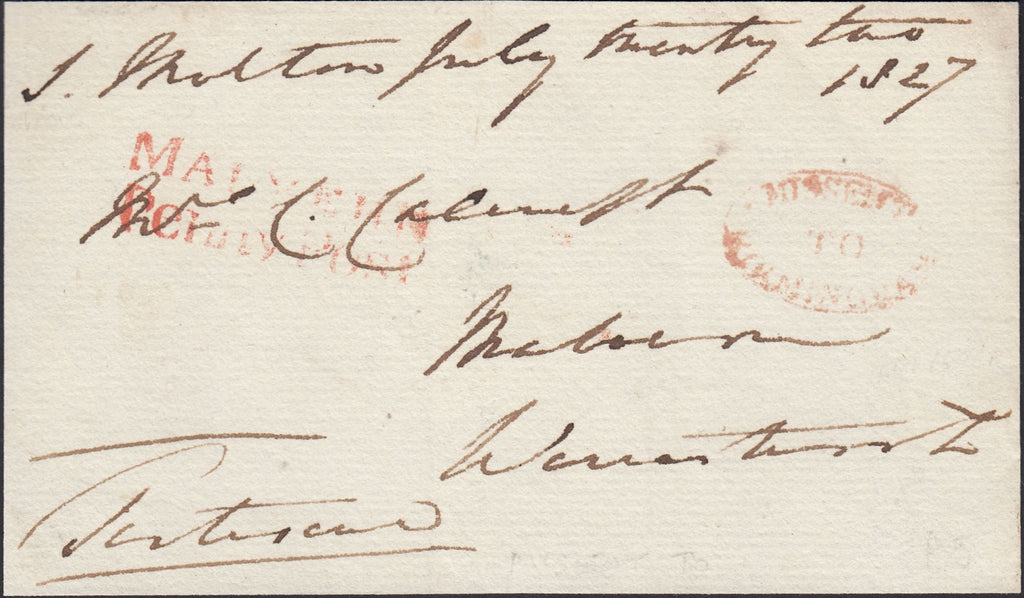 S. Molton July twenty two
1827
MALVERN
Penny Post
Mrs. C. Calcraft
MISSENT
TO
BIRMINGHAM
Malvern
Worcestersh
Fortescue